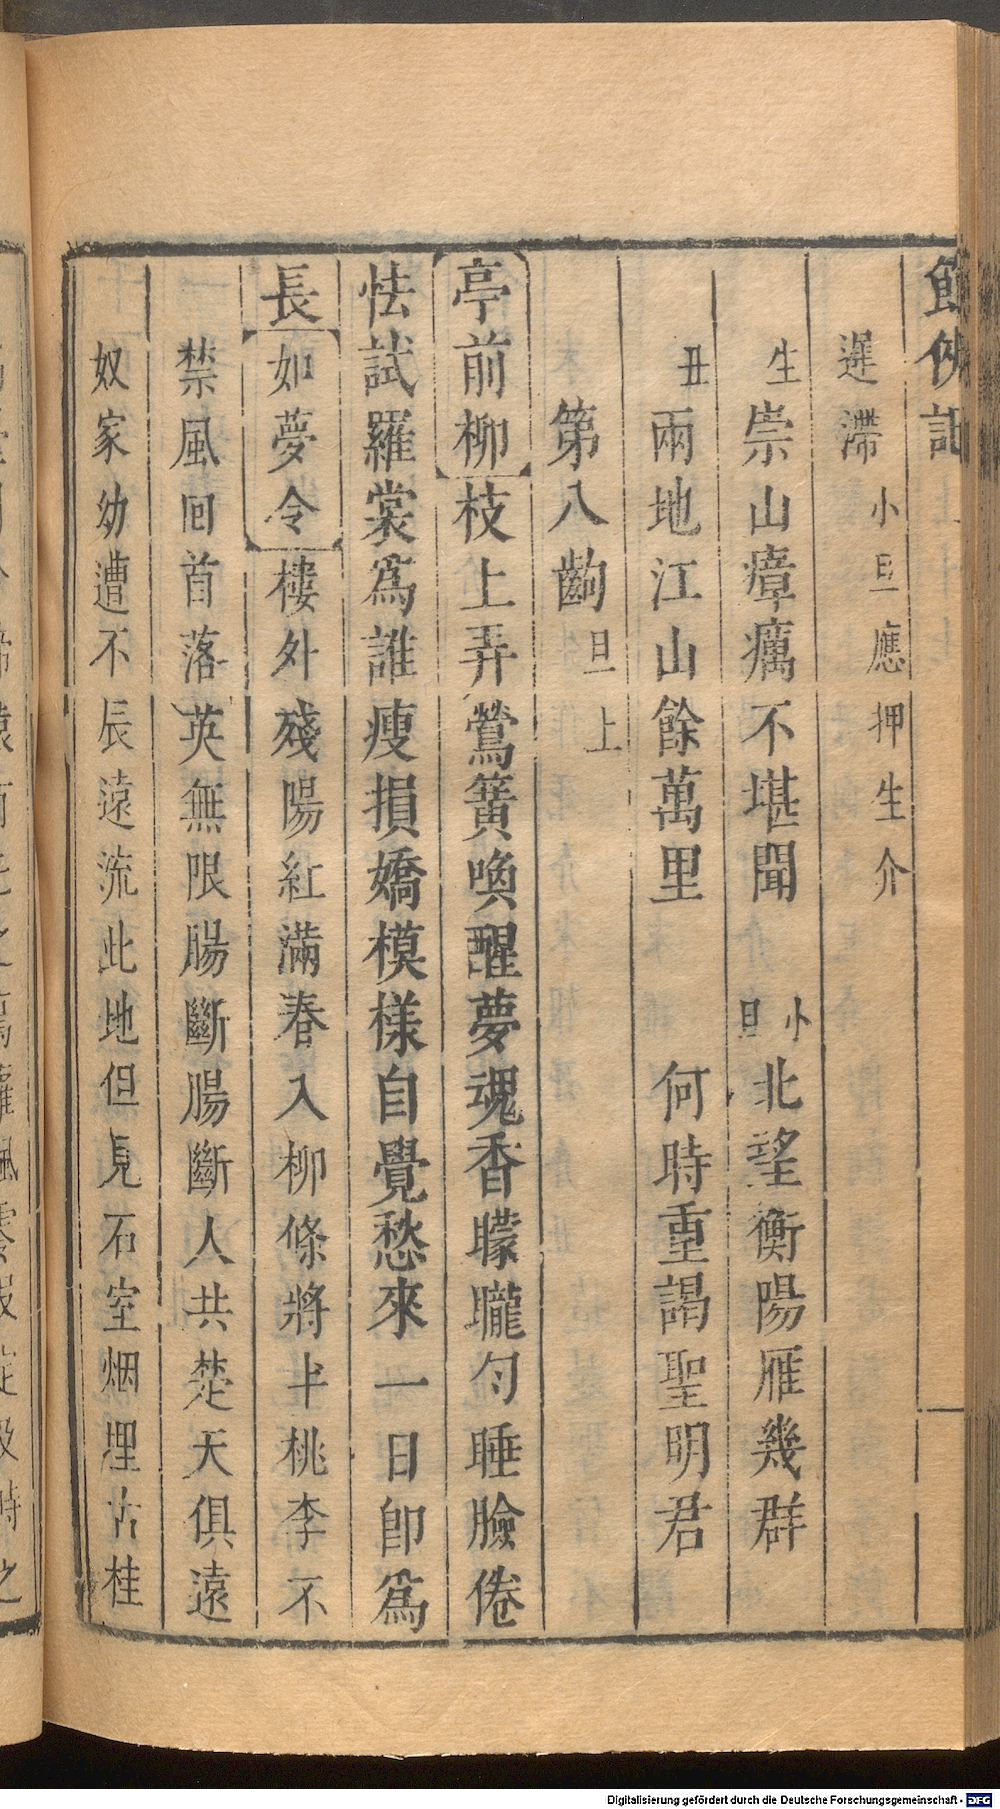 遲滯小旦應押生介
生崇山瘴癘不堪聞　小旦北望衡陽雁幾群
丑兩地江山餘萬里　何時重謁聖明君
第八齣旦上
亭前柳枝上弄鶯簧喚醒夢魂香矇矓勻睡臉倦
怯試羅裳爲誰瘦損嬌模樣自覺愁來一日卽爲
長如夢令樓外殘陽紅滿春入柳條將半桃李不
禁風回首落英無限腸斷腸斷人共楚天俱遠
奴家幼遭不辰遠流此地但見石室烟埋古桂
Digitalisierung gefördert durch die Deutsche Forschungsgemeinschaft - DFG